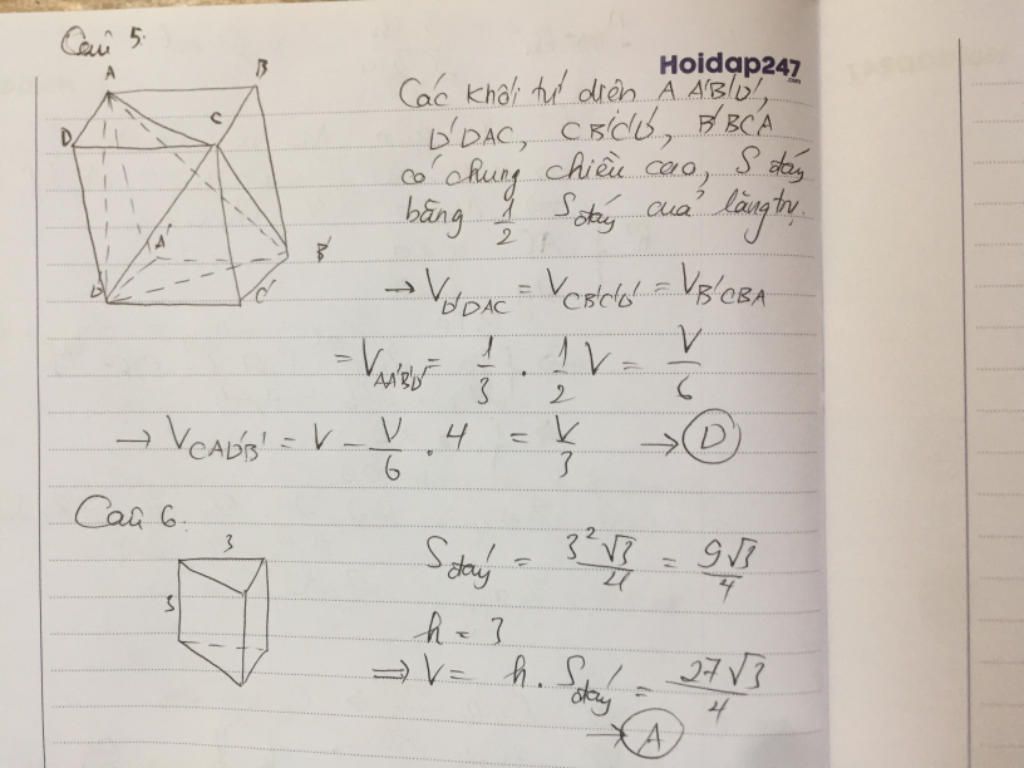 Câu 5:
A
B
D
C
A'
B'
D'
C'
Hoidap247
.com
Các khối tứ diện A A'B'D',
D'DAC, CB'C'D', B'BCA
có chung chiều cao, S đáy
bằng 1/2 S đáy của lăng trụ.
→ V D'DAC = V CB'C'D' = V B'CBA
= V AA'B'D' = 1/3 . 1/2 V = V/6
→ V CAD'B' = V - V/6 . 4 = V/3 → D
Câu 6.
3
3
S đáy = 3²√3/4 = 9√3/4
h = 3
⇒ V = h. S đáy = 27√3/4
→ A